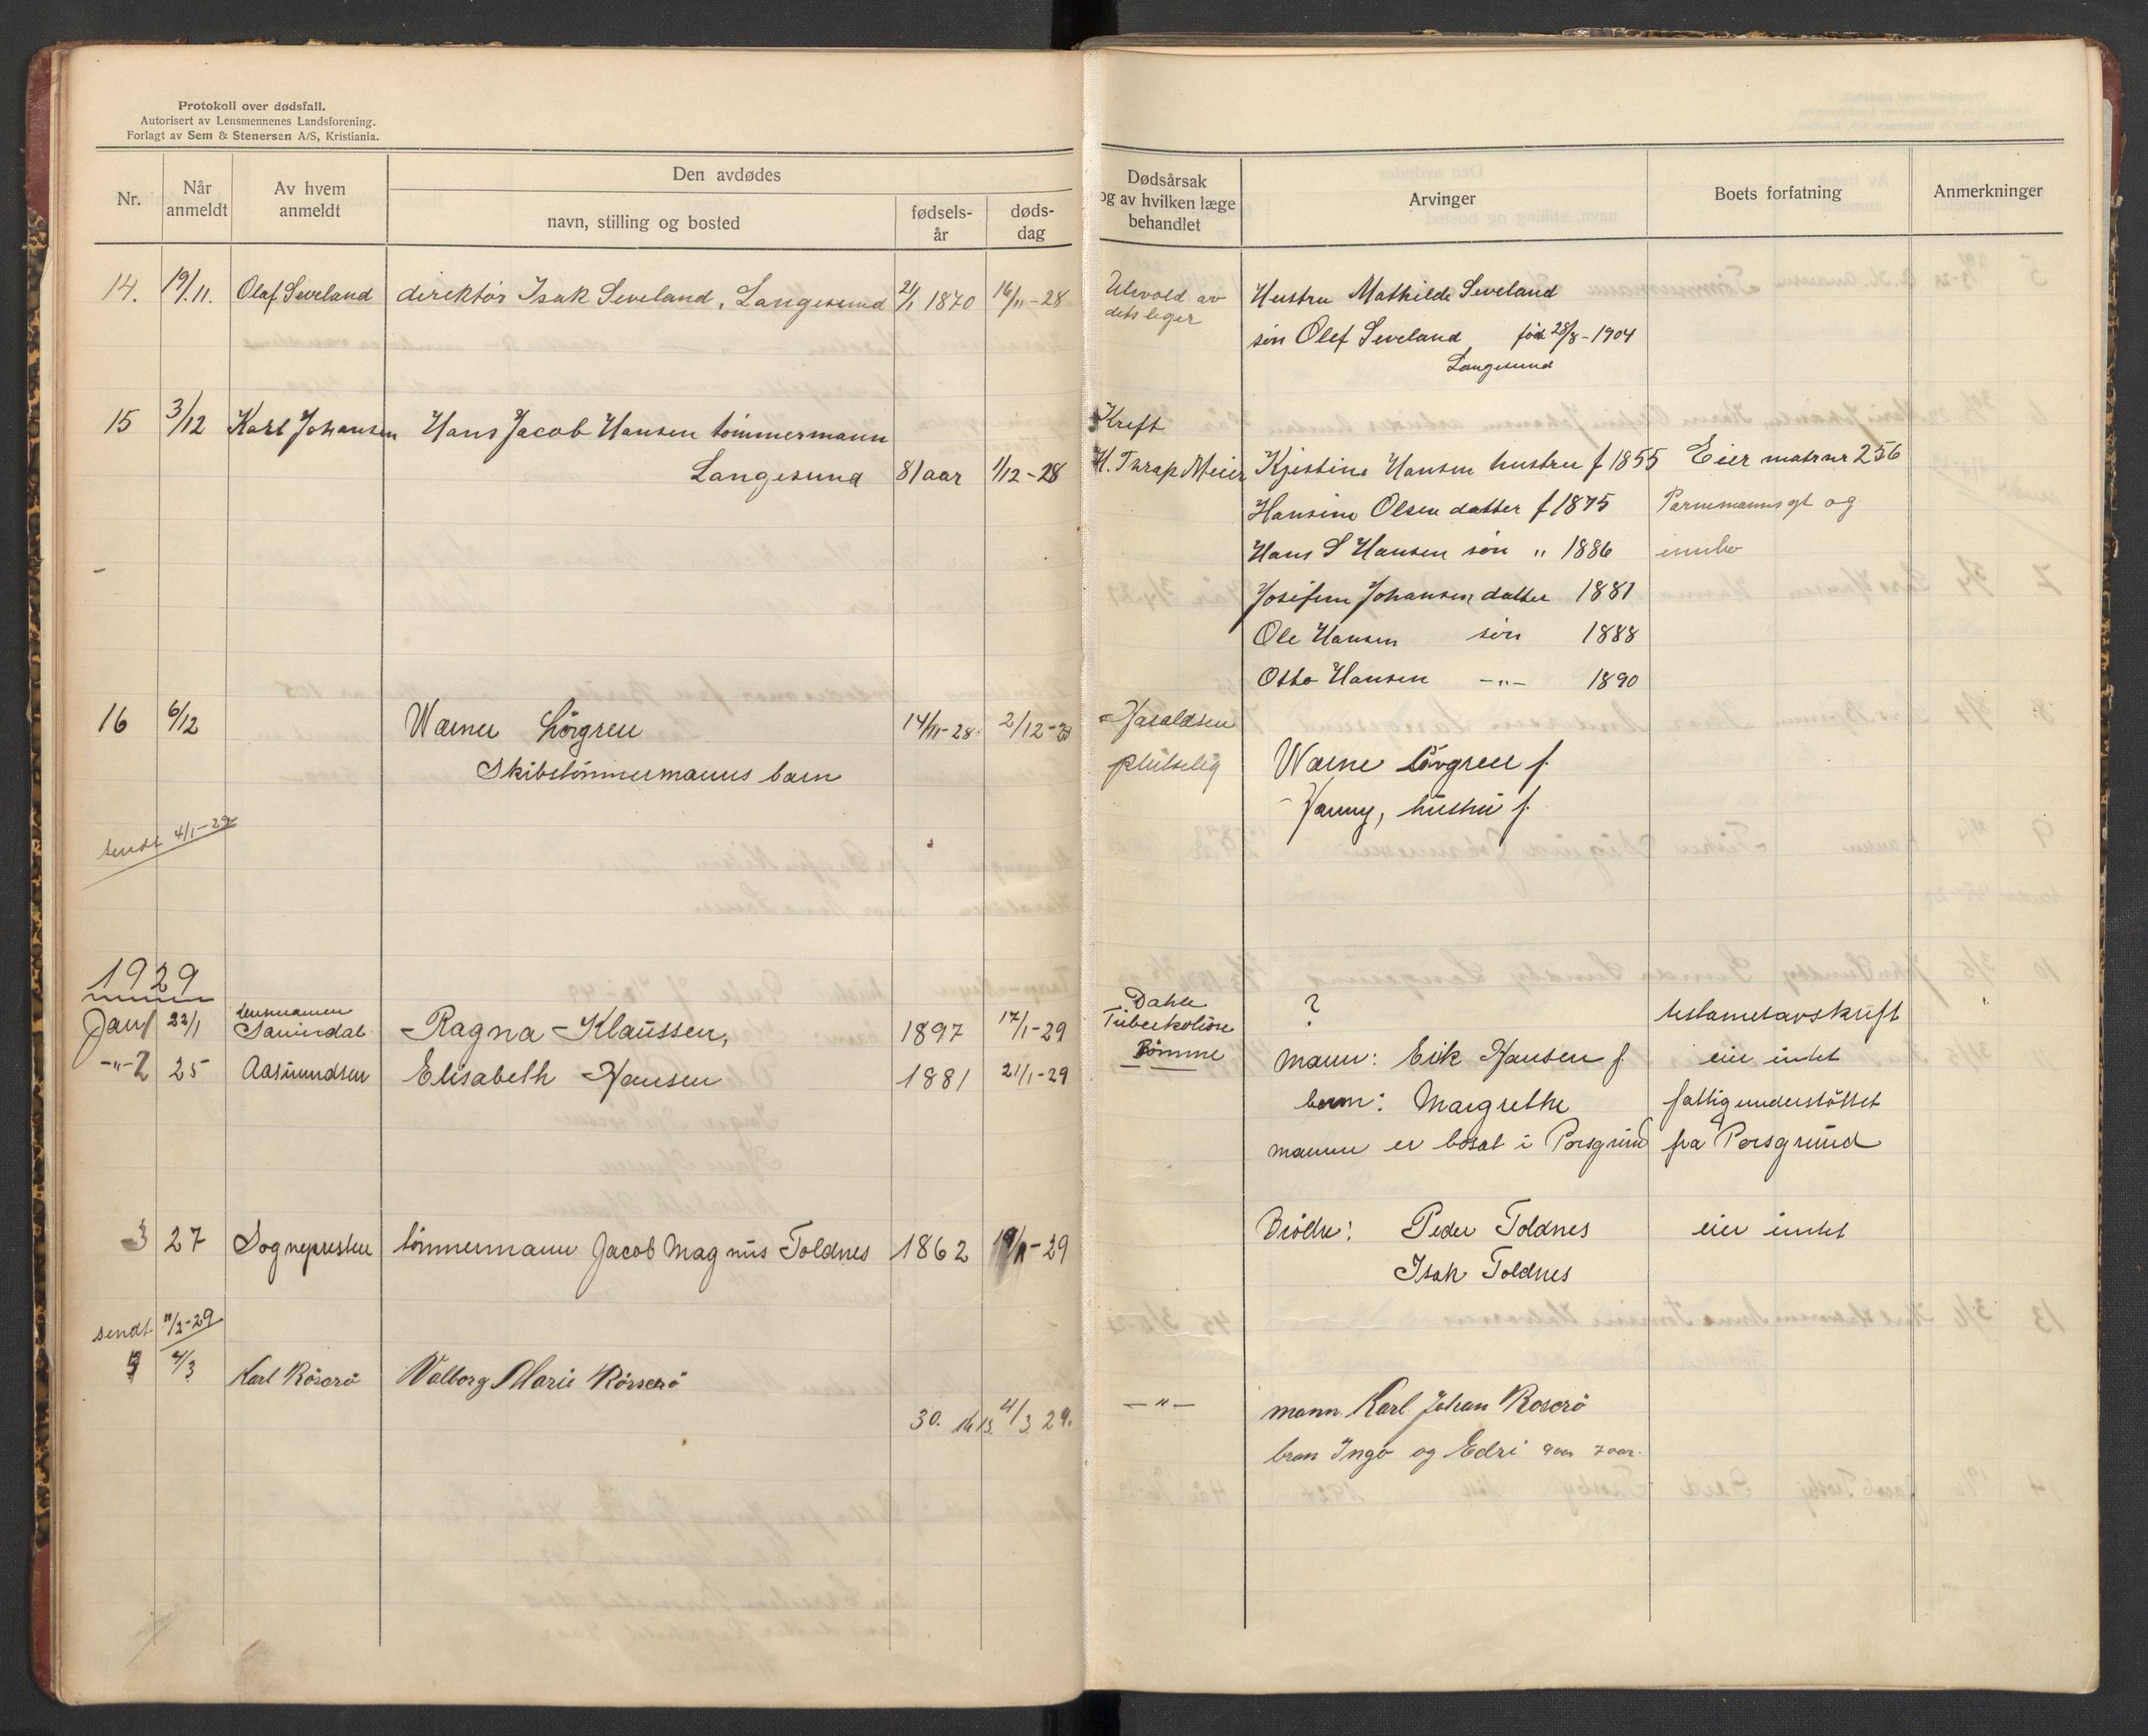 Protokoll over dødsfall.
Autorisert av Lensmennenes Landsforening.
Forlagt av Sem & Stenersen A/S, Kristiania.
Nr.
Når anmeldt
Av hvem anmeldt
Den avdødes
navn, stilling og bosted
fødsels-år
døds-dag
Dødsårsak og av hvilken læge behandlet
Arvinger
Boets forfatning
Anmerkninger
14. 19/11. Olaf Seveland direktør Isak Seveland, Langesund 1870 16/11-28
av dets leger
Hustru Mathilde Seveland
søn Olef Seveland fød 28/8-1904
Langesund
15 3/12 Karl Johansen Hans Jacob Hansen tømmermann
Langesund 81 aar 1/12-28
Kreft
H. Thrap Meier Kjestine Hansen hustru f 1855 Eier matr nr 256
Hansine Olsen datter f 1875 og
Hans S Hansen søn " 1886 innbo
Josefine Johansen datter 1881
Ole Hansen søn 1888
Otto Hansen -"- 1890
16 6/12 Werner Lövgren 14/11-28 2/12-28
Skibstömmermanns barn
Haraldsen
plutselig
Warne Lövgren f.
Hanny, hustru f.
sendt 4/1-29
1929
Jan 1 22/1 Lensmannen
Sannidal Ragna Klaussen, 1897 17/1-29
Dahle
Tuberkolöse
? testametavskrift
-"- 2 25 Aasmundsen Elisabeth Hansen 1881 21/1-29
Tömme
Mann: Erik Hansen f. eier intet
barn: Margrethe fattigunderstöttet
mannen er bosat i Porsgrund fra Porsgrund
3 27 Sognepresten tömmermann Jacob Magnus Toldnes 1862 -29
Brödre: Peder Toldnes eier intet
Isak Toldnes
sendt 11/2-29
4/3 Karl Röserö Valborg Marie Rörserö
30. 4/3 29.
-"-
mann Karl Johan Roserö
bran Ingo og Edri 9 aar 7 aar.